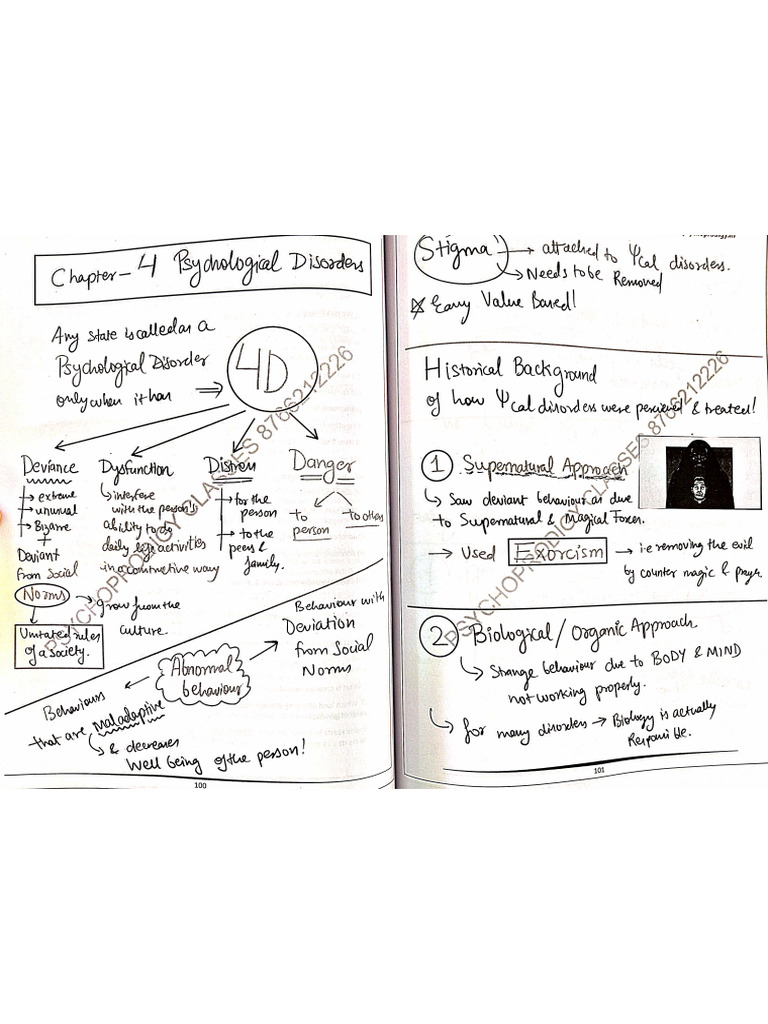 Chapter - 4 Psychological Disorders
Any state is called as a
Psychological Disorder
only when it has ⇒
4D
Deviance
→ extreme
→ unusual
→ Bizarre
+
Deviant
from Social
Norms → grow from the
culture.
Unstated rules
of a society.
Dysfunction
↳ interfere
with the person's
ability to do
daily life activities
in a constructive way
Distress
→ for the
person
→ to the
peers &
family.
Danger
to
person
to others
Abnormal
behaviour
Behaviour with
Deviation
from Social
Norms
Behaviours
that are maladaptive
↳ & decreases
Well being of the person!
100
Stigma → attached to Ψcal disorders.
→ Needs to be Removed
Value Based!
Historical Background
of how Ψcal disorders were perceived & treated!
1 Supernatural Approach
↳ Saw deviant behaviour as due
to Supernatural & Magical Forces.
→ Used Exorcism → i.e removing the evil
by counter magic & prayer.
2 Biological / Organic Approach
↳ Strange behaviour due to BODY & MIND
not working properly.
↳ for many disorders → Biology is actually
Responsible.
101
PSYCHOPRODIGY CLASSES 8766212226
PSYCHOPRODIGY CLASSES 8766212226